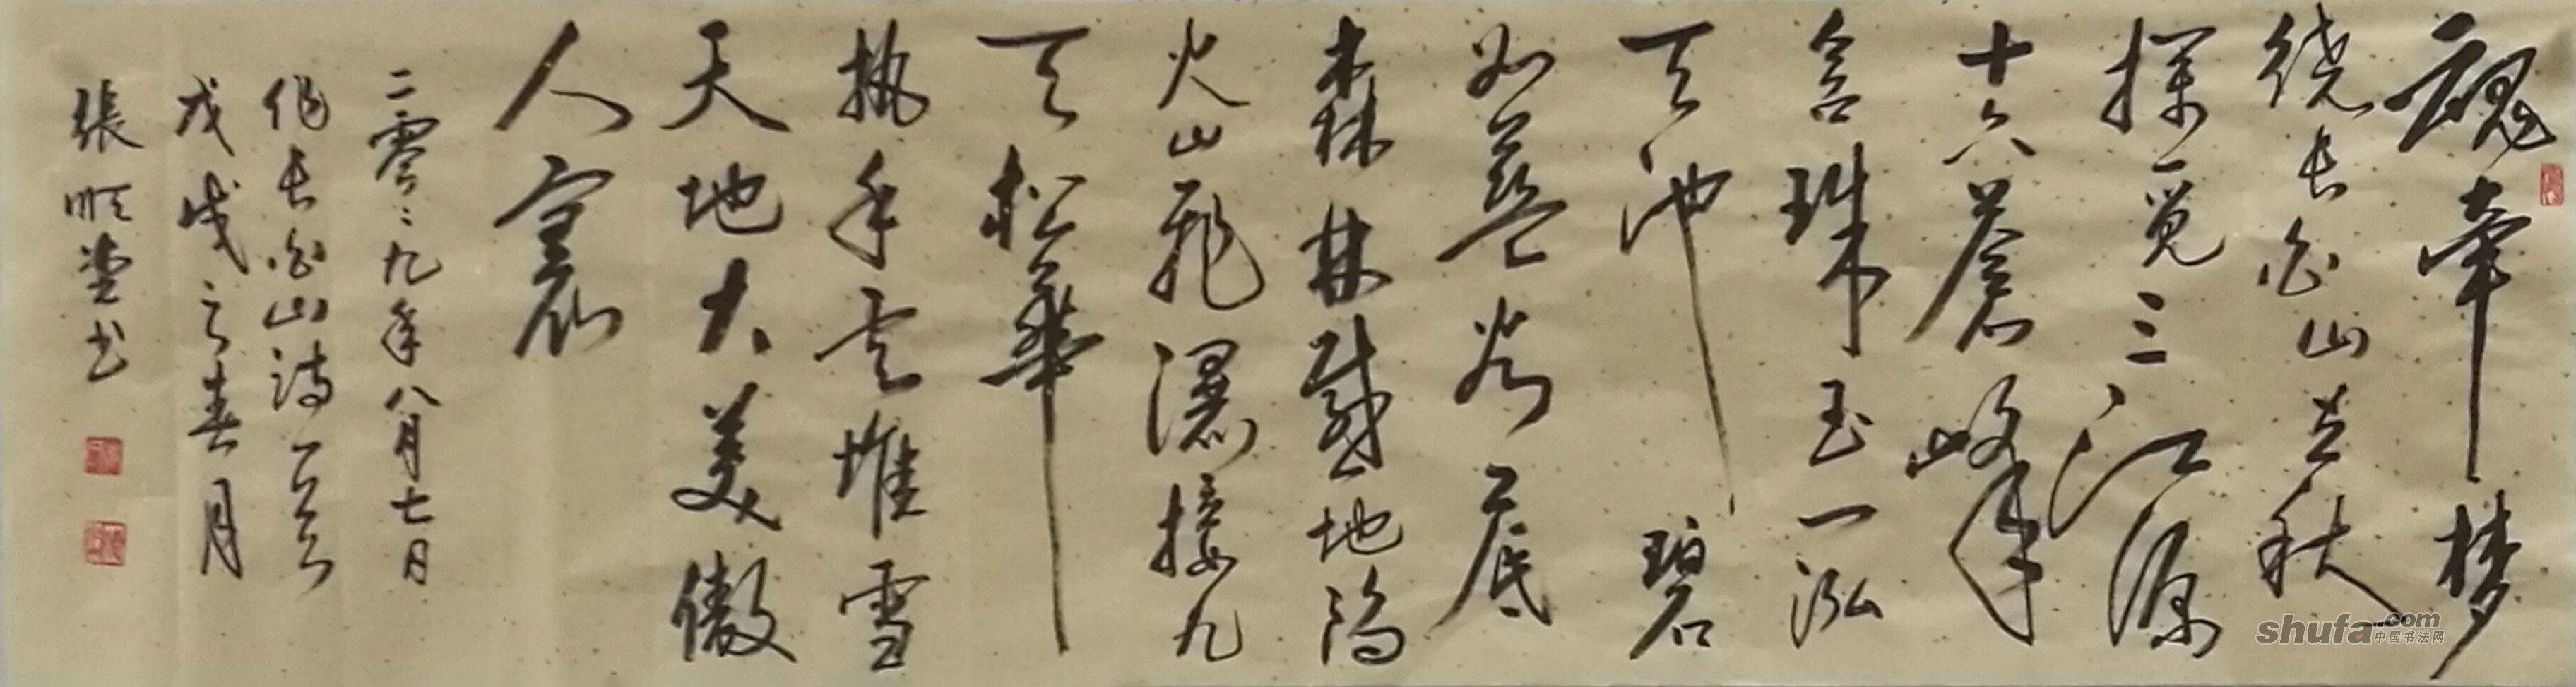 魂牵梦
绕长白山立秋
探觅三江源
十六苍峰
含珠玉一泓
天池 碧
如蓝谷底
森林感地陷
火山飞瀑接九
天松華
执手云堆雪
天地大美傲
人寰
二零零九年八月七日
作长白山诗一首
戊戌之春月
張順 书
shufa.com
中国书法网